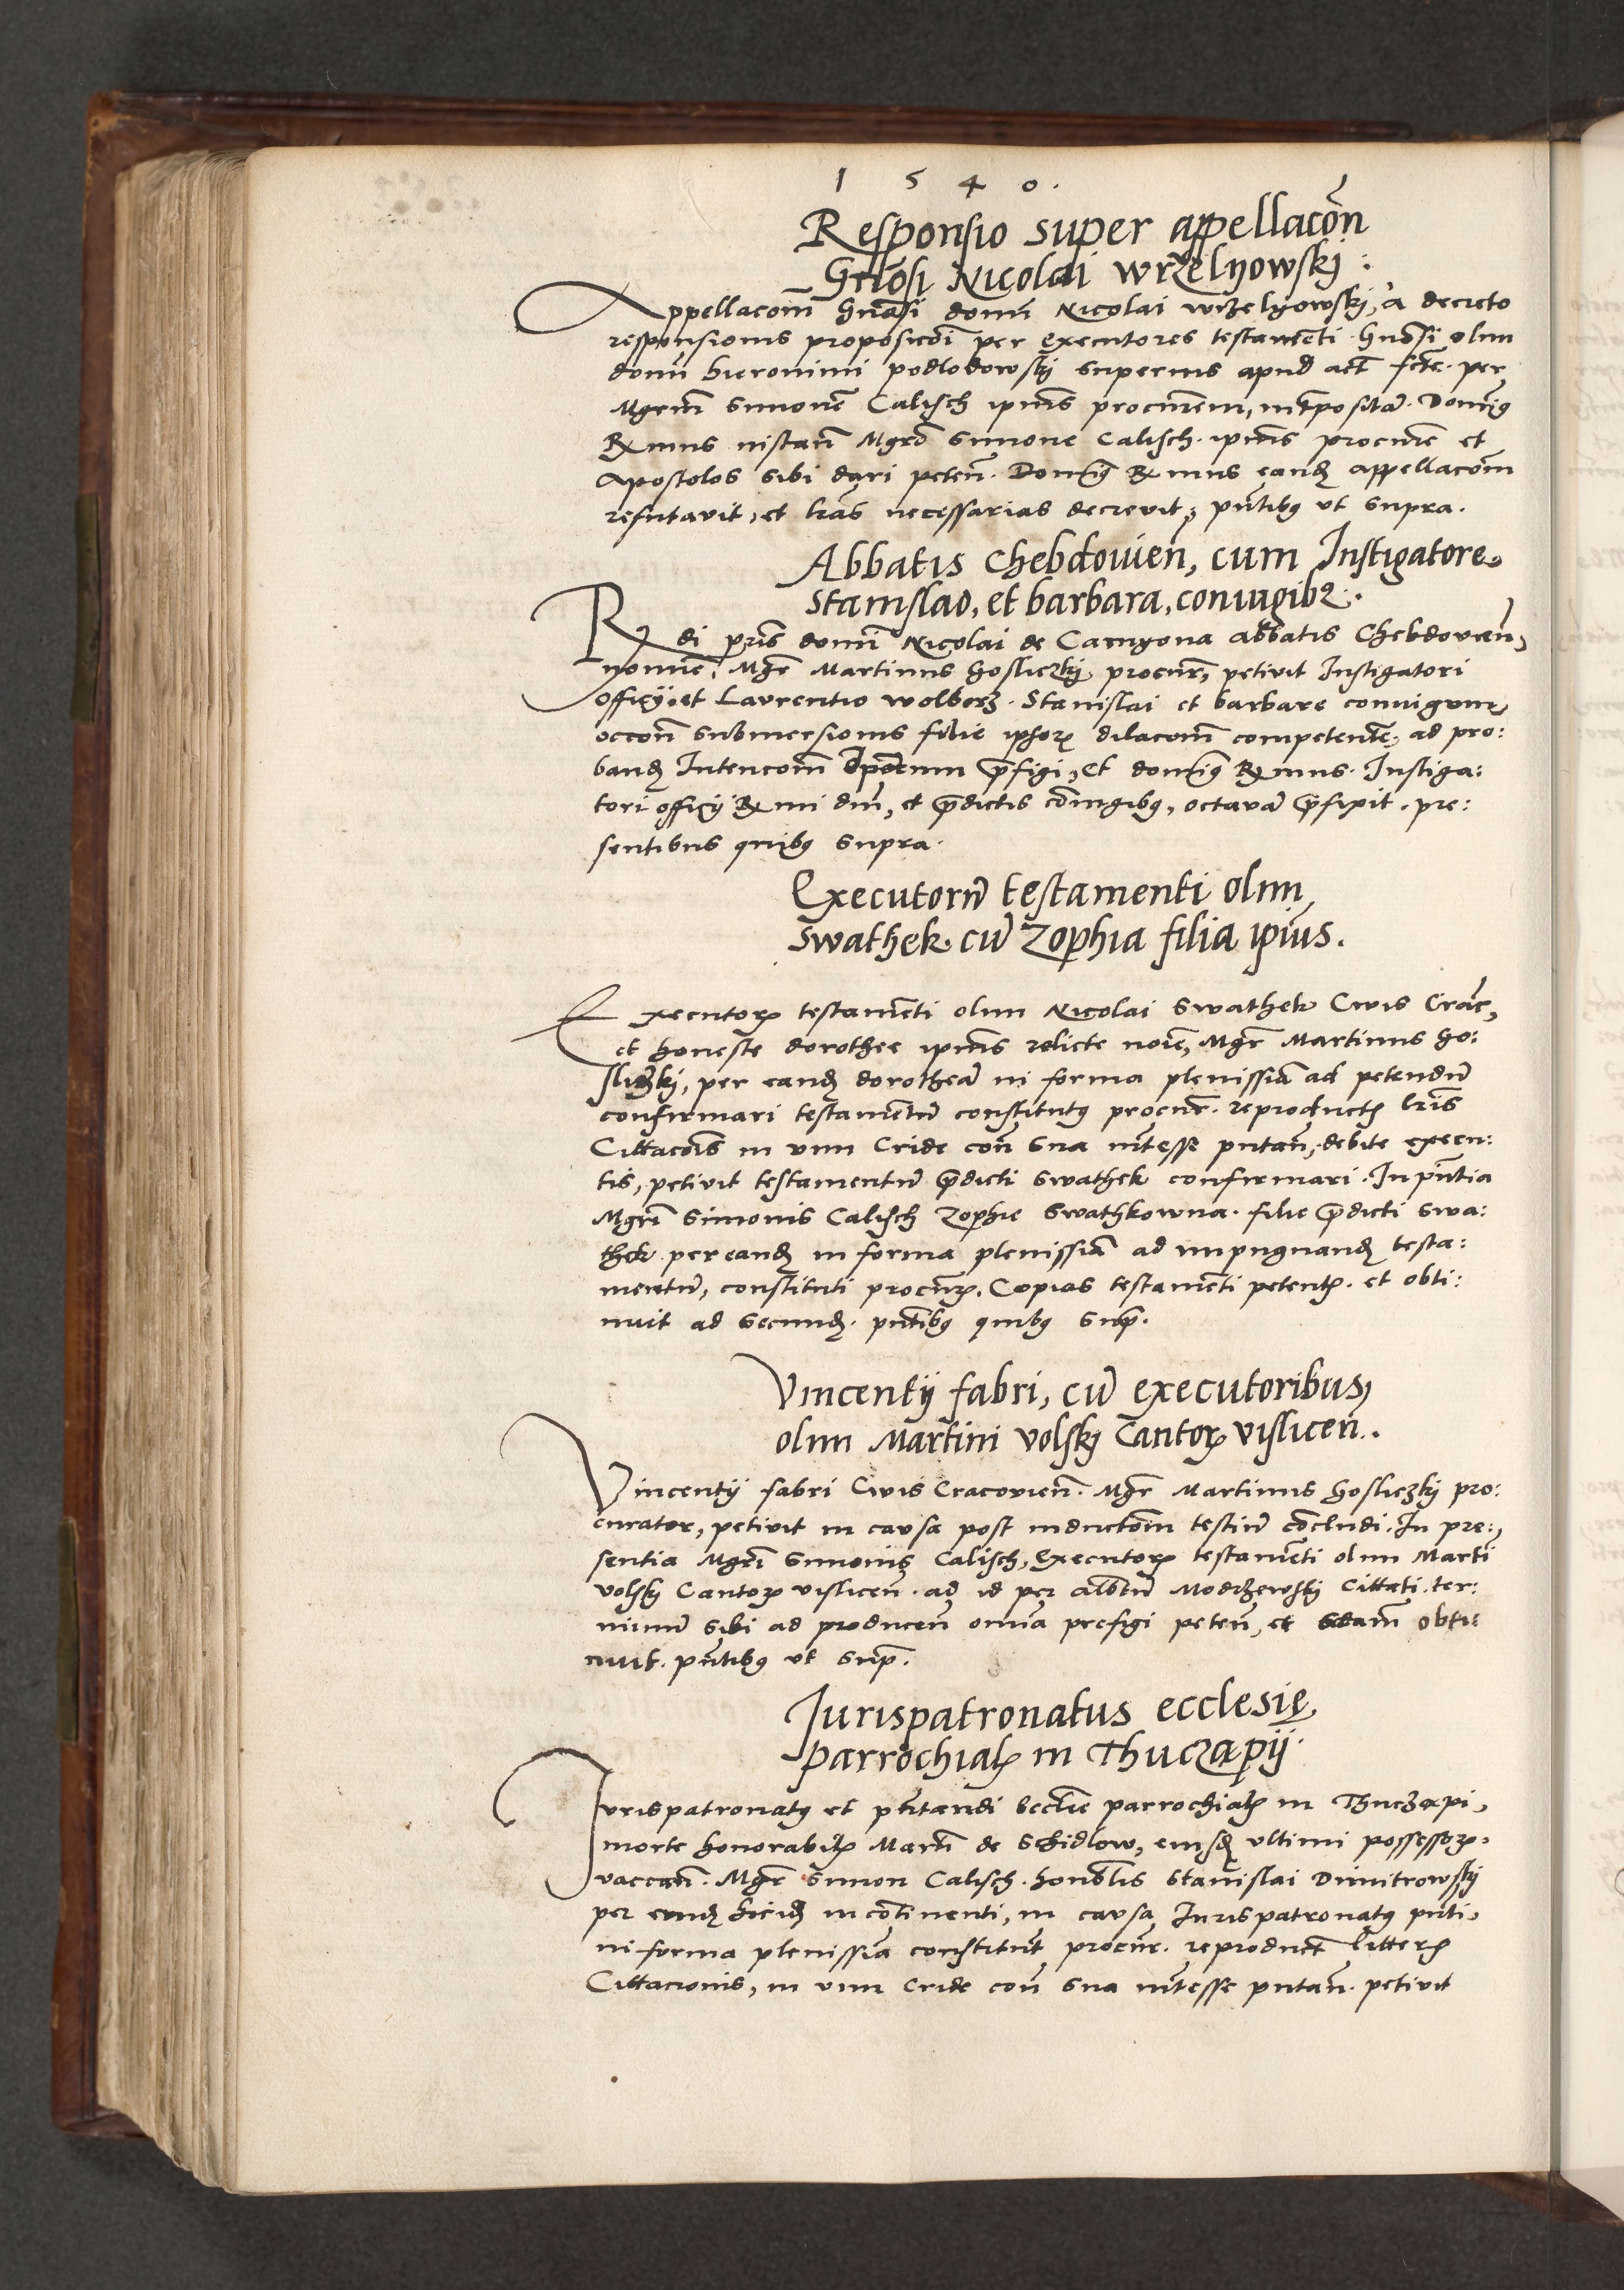 1540.
Responsio super appellacoñ
Gnosi Nicolai wrzelyowskj:
Appellacom̃ Gnãsi domi Nicolai wrzelyowskj, a decreto
responsionis propositioni per executores testamẽti Gnosi olim
domi hieronimi podlodowskj superius apud act̃ fctẽ per
Mgrm̃ Simonẽ Calisch ipius procurem, interpositã. Domiq̃
Rx̃mus instan̄ Mgrõ Simone Calisch. ipius procurẽ et
Apostolos sibi dari peten̄. Domiq̃ Rx̃mus eandẽ appellacom̃
refutavit, et l̃ras necessarias decrevit, pñtibꝯ ut supra.
Abbatis Chebdovien̄, cum Instigatore
Stanislao, et barbara, coniugibꝫ.
Rx̃di pris domi Nicolai de Camyona abbatis Chebdovien̄,
nomine, Mgr̃ Martinus Goslieczkj procur̃, petivit Instigatori
officij, et Laurentio wolborz. Stanislai et barbare coniugum,
occon̄ submersionis filie ipsorꝫ dilacom̃ competentẽ, ad pro:
bandẽ Intencom̃ p̃figi, et domiq̃ Rx̃mus. Instiga:
tori officij Rx̃mi dni, et p̃dictis coniugibꝯ, octavã p̃fixit. pre:
sentibus quibꝯ supra.
Executorũ testamenti olim
Swathek cũ Zophia filia ipius.
Executorꝫ testamẽti olim Nicolai Swathek Civis Crac̃,
et honeste dorothee ipius relicte noiẽ, Mgr̃ Martinus Go:
slieczkj, per eandẽ dorotheã in forma plenissiã ad petendũ
confirmari testamẽtũ constitutꝯ procur̃. reproductꝭ l̃ris
Cittacõis in vim Cride con̄ sua int̃esse putan̄, debite execu:
tis, petivit testamentũ p̃dicti Swathek confirmari. In pñtia
Mgri Simonis Calisch Zophie Swathkowna. filie p̃dicti Swa:
thek per eandẽ in forma plenissiã ad impugnandẽ testa:
mentũ, constituti procurꝫ. Copias testamẽti petentꝭ. et obti:
nuit ad secundẽ. pñtibꝯ quibꝯ sup̃.
Vincentij fabri, cũ executoribus,
olim Martini volskj Cantorꝫ vislicen̄.
Vincentij fabri Civis Cracovien̄. Mgr̃ Martinus Goslieczkj pro:
curator, petivit in causa post inductom̃ testiũ cõcludi. In pre:,
sentia Mgri Simonis Calisch, Executorꝫ testamẽti olim Marti
volskj Cantorꝫ vislicen̄. ad id per albtũ Modrzewskj Cittati. ter:
minũ sibi ad producen̄ omia prefigi peten̄, et scdam̃ obti:
nuit. pñtibꝯ ut sup̃.
Jurispatronatus ecclesię
parrochialꝭ in Thuczapij
Jurispatronatꝯ et pñtandi eccl̃ie parrochialꝭ in Thuczapi,
morte honorabilꝭ Martĩ de Schidlow, eiusdẽ ultimi possessorꝫ.
vaccan̄. Mgr̃ Simon Calisch. honoblis Stanislai Dimitrowskj
per eundẽ ibidẽ incõtinenti, in causa Jurispatronatꝯ pñti,
in forma plenissiã constitut̃ procur̃. reproduct̃ litterꝭ
Cittacionis, in vim Cride con̄ sua int̃esse putan̄. petivit